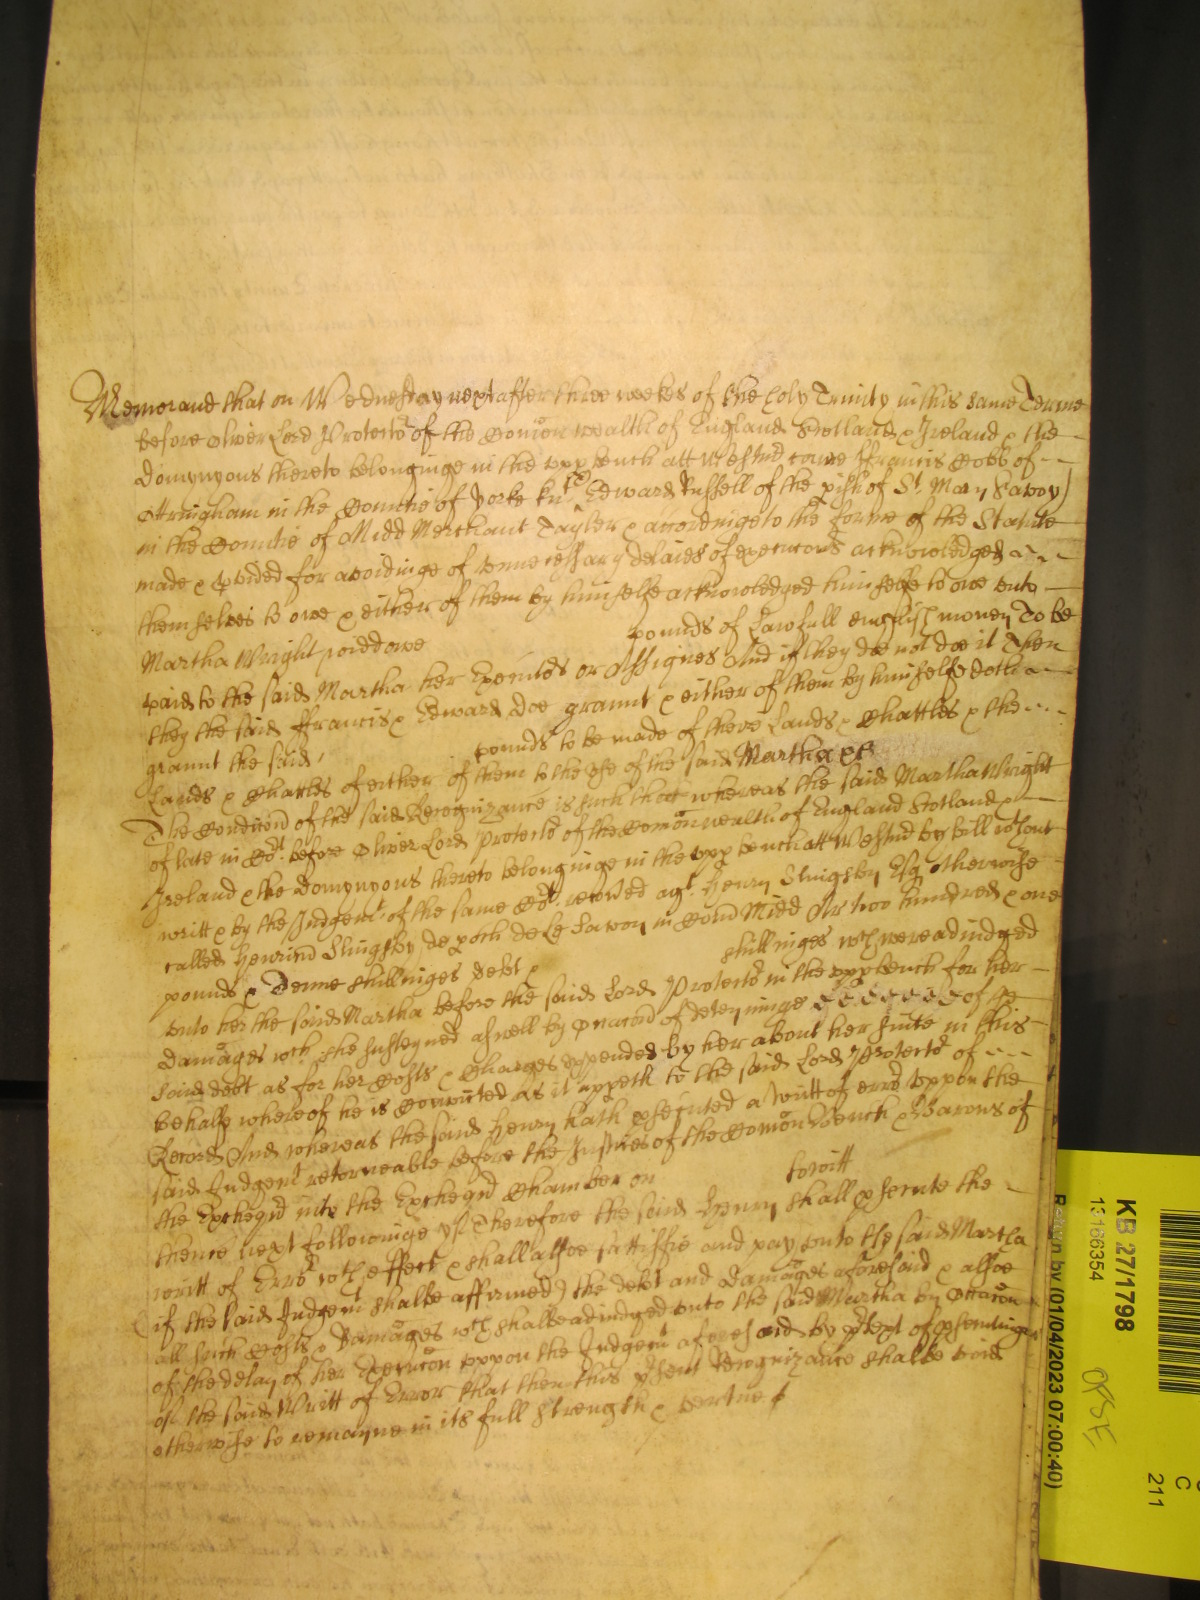 Memorand that on Wednesday next after three weekes of the holy Trinity in this same Terme
before Oliver Lord Protector of the Comon wealth of England Scotland & Ireland & the
domynyons thereto belonginge in the upp bench att Westmd came ffrancis Cobb of
Ottringham in the Countie of Yorke knt Edward Russell of the pish of St Mary Savoy
in the Countie of Midd Merchant Tayler & accordinge to the forme of the Statute
made & pvided for avoidinge of unnecessary delaies of execucons acknowledged
themselves to owe & either of them by himselfe acknowledged himselfe to owe unto
Martha Wright widdowe pounds of Lawfull english money To be
paid to the said Martha her Executors or Assignes And if they doe not doe it Then
they the said ffrancis & Edward doe graunt & either of them by himselfe doth
graunt the said pounds to be made of there Lands & Chattles & the
Lands & Chattles of either of them to the use of the said Martha &c
The Condicon of the said Recognizance is such that whereas the said Martha Wright
of late in Cot before Oliver Lord Protector of the Comonwealth of England Scotland &
Ireland & the Domynyons thereto belonginge in the upp bench att Westmd by bill without
writt & by the Judgemt of the same Cot recoved agt Henry Slingsby Esq otherwise
called Henricu Slingsby de poch de le Savoy in Com Midd Ar two hundred & one
pounds & Tenne shillinges debt & shillinges wch were adiudged
unto her the said Martha before the said Lord Protector in the upp bench for her
damages wch she susteyned aswell by occacon of deteyninge of ye
said debt as for her Costs & Charges expended by her about her suite in this
behalfe whereof he is convicted as it appeth to the said Lord Protector of
Record And whereas the said Henry hath psecuted a writt of error uppon the
said Judgemt retorneable before the Justices of the Comon Bench & Barons of
the Exchequer into the Exchequer Chamber on towitt
thence next followinge yf Therefore the said Henry shall psecute the
writt of Error wth effect & shall alsoe sattisfie and pay unto the said Martha
(if the said Judgemt shalbe affirmed) the debt and damages aforesaid & alsoe
all such Costs & Damages wch shalbe adiudged unto the said Martha by occacon
of the delay of her Execucon uppon the Judgemt aforesaid by ptext of psecutinge
of the said Writt of Error that then this psent Recognizance shalbe void
otherwise to remayne in its full strength & vertue
KB 27/1798
13166354
Return by (01/04/2023 07:00:40)
C
211